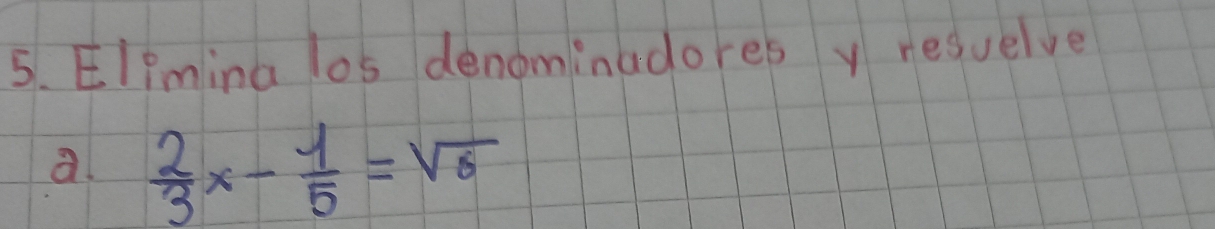 5. Elimina los denominadores y resuelve
a. 2/3 x - 1/5 = √6